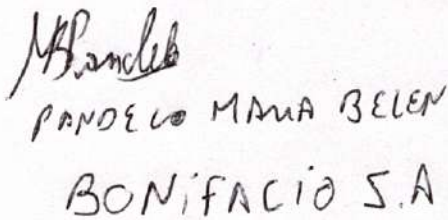 MBPandelo
PANDELO MARIA BELEN
BONiFACiO S.A